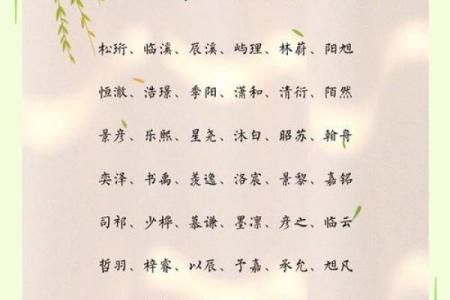 松珩、临溪、辰溪、屿理、林蔚、阳旭
恒澈、浩璟、季阳、潇和、清衍、陌然
景彦、乐熙、星尧、沐白、昭苏、翰舟
奕泽、书禹、羡逸、洛宸、景黎、嘉铭
司祁、少桦、慕谦、墨凛、彦之、临云
哲羽、梓睿、以辰、予嘉、承允、旭凡